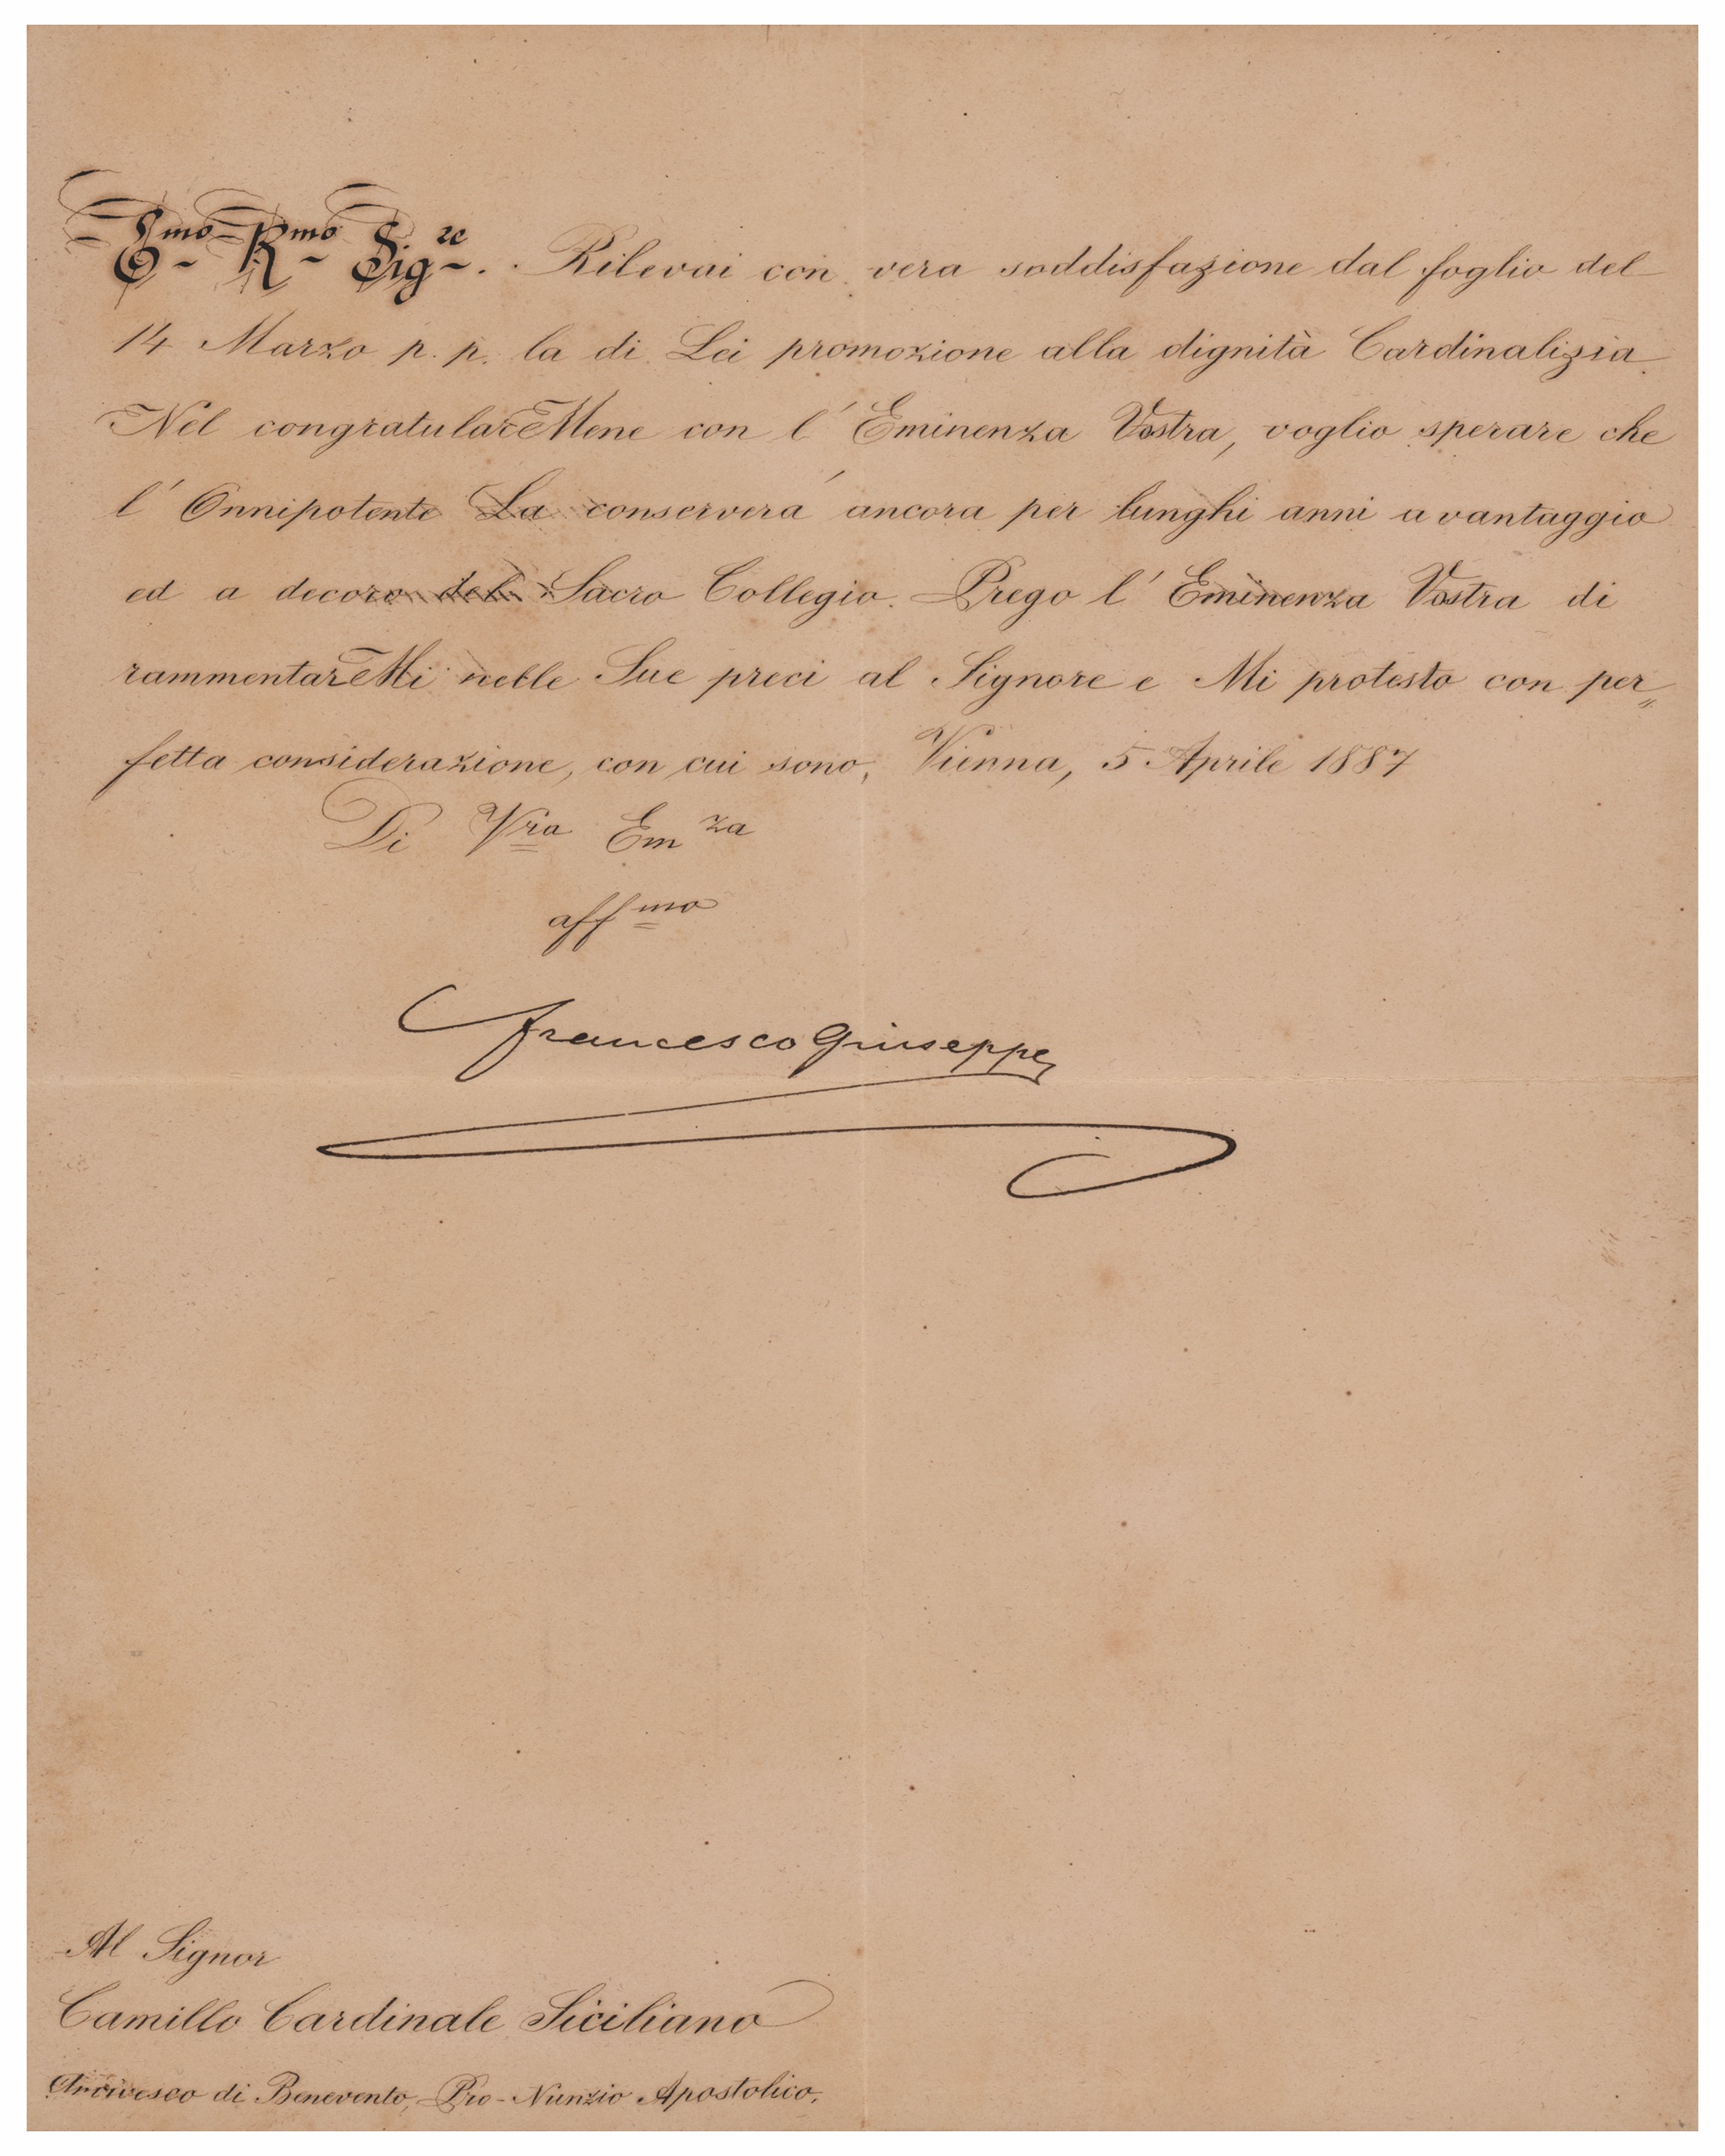 Emo Rmo Sigre. Rilevai con vera soddisfazione dal foglio del
14 Marzo p. p. la di Lei promozione alla dignità Cardinalizia.
Nel congratulareMene con l'Eminenza Vostra, voglio sperare che
l'Onnipotente La conserverà ancora per lunghi anni a vantaggio
ed a decoro del Sacro Collegio. Prego l'Eminenza Vostra di
rammentareMi nelle Sue preci al Signore e Mi protesto con per„
fetta considerazione, con cui sono, Vienna, 5 Aprile 1887
Di Vra Emza
affmo
Francesco Giuseppe
Al Signor
Camillo Cardinale Siciliano
Arcivesco di Benevento, Pro-Nunzio Apostolico.